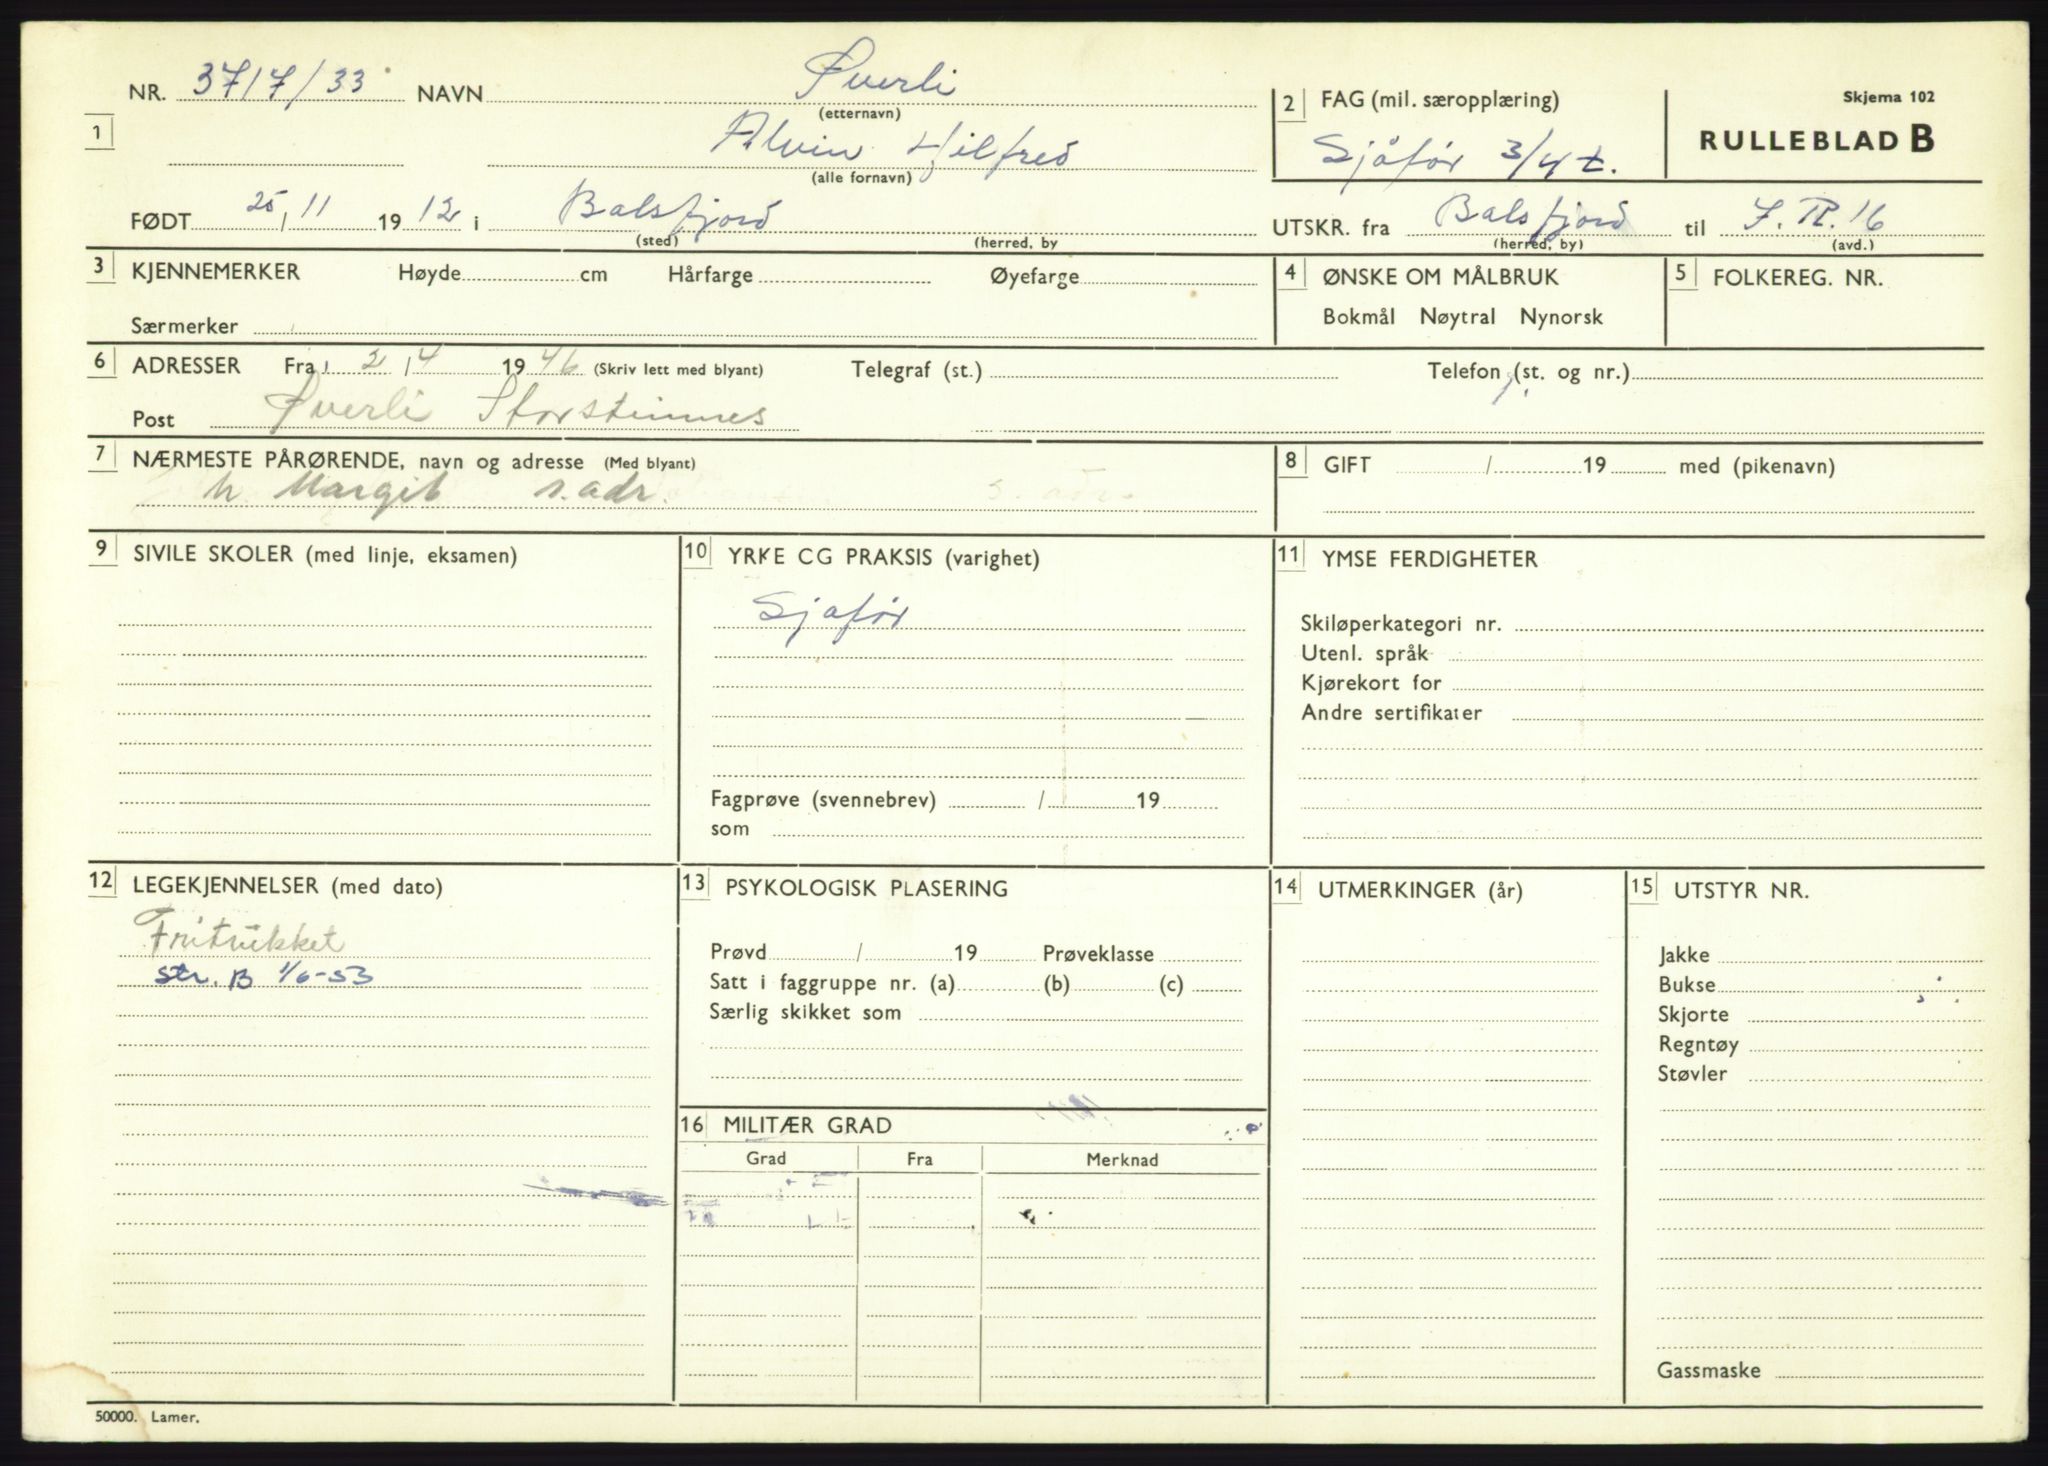 NR. 3717/33 NAVN Øverli
(etternavn)
1 Alvin Hilfred
(alle fornavn)
2 FAG (mil. særopplæring)
Sjåfør 3/4 t.
Skjema 102
RULLEBLAD B
FØDT 25/11 1912 i Balsfjord
(sted) (herred, by
UTSKR. fra Balsfjord til I.R. 16
(herred, by) (avd.)
3 KJENNEMERKER Høyde cm Hårfarge Øyefarge
Særmerker
4 ØNSKE OM MÅLBRUK
Bokmål Nøytral Nynorsk
5 FOLKEREG. NR.
6 ADRESSER Fra 2/4 1946 (Skriv lett med blyant) Telegraf (st.) Telefon (st. og nr.)
Post Øverli Storsteinnes
7 NÆRMESTE PÅRØRENDE, navn og adresse (Med blyant)
h Margit s. adr.
8 GIFT / 19 med (pikenavn)
9 SIVILE SKOLER (med linje, eksamen)
10 YRKE CG PRAKSIS (varighet)
Sjafør
Fagprøve (svennebrev) / 19
som
11 YMSE FERDIGHETER
Skiløperkategori nr.
Utenl. språk
Kjørekort for
Andre sertifikater
12 LEGEKJENNELSER (med dato)
str. B 1/6-53
13 PSYKOLOGISK PLASERING
Prøvd / 19 Prøveklasse
Satt i faggruppe nr. (a) (b) (c)
Særlig skikket som
14 UTMERKINGER (år)
15 UTSTYR NR.
Jakke
Bukse
Skjorte
Regntøy
Støvler
Gassmaske
16 MILITÆR GRAD
Grad Fra Merknad
50000. Lamer.